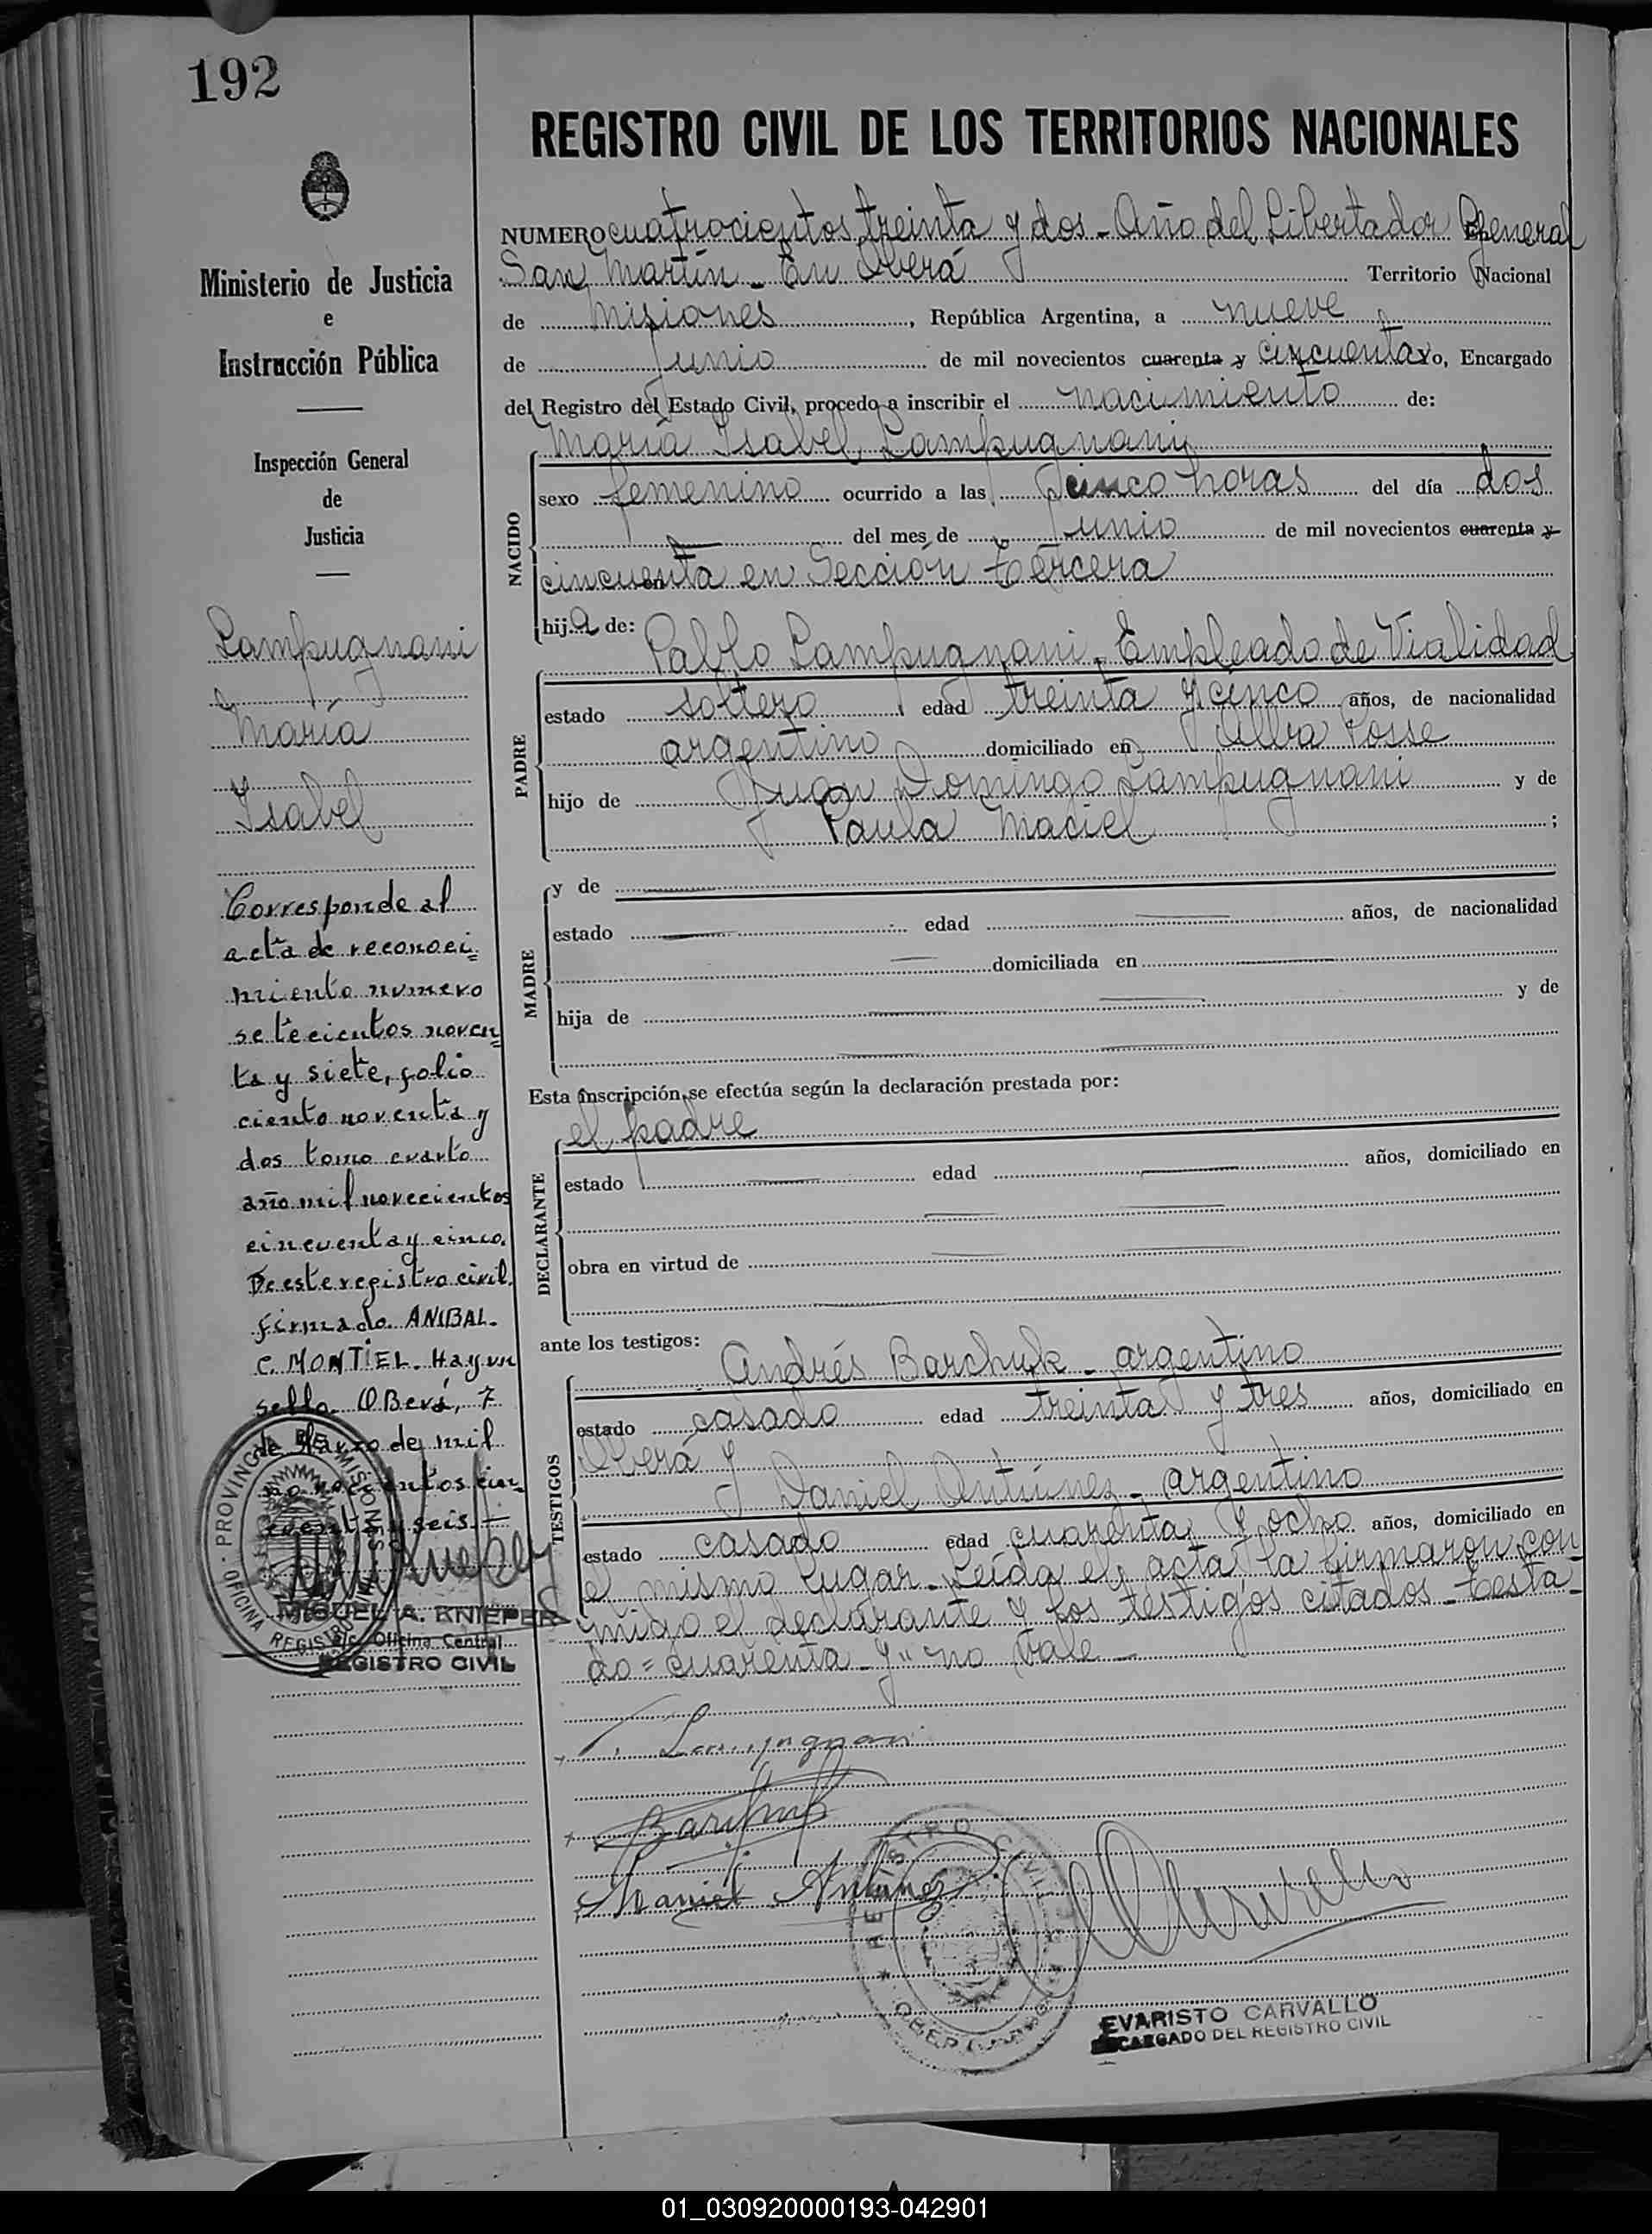 192
REGISTRO CIVIL DE LOS TERRITORIOS NACIONALES
NUMERO cuatrocientos treinta y dos - Año del Libertador General
San Martín - En Oberá Territorio Nacional
de Misiones, República Argentina, a nueve
de Junio de mil novecientos cuarenta y cincuenta yo, Encargado
del Registro del Estado Civil, procedo a inscribir el nacimiento de:
Ministerio de Justicia
e
Instrucción Pública
Inspección General
de
Justicia
Lampugnani
María
Isabel
Corresponde al
acta de reconoci=
miento numero
setecientos noven=
ta y siete, folio
ciento noventa y
dos tomo cuarto
año mil novecientos
cincuenta y cinco.
De este registro civil.
firmado. ANIBAL.
C. MONTIEL. Hay un
sello. OBerá, 7
de Marzo de mil
novecientos cin-
cuenta y seis.-
PROVINCIA DE MISIONES
OFICINA REGISTRO CIVIL
MIGUEL A. KNIEPER
s/c. Oficina Central
REGISTRO CIVIL
NACIDO
María Isabel Lampugnani
sexo femenino ocurrido a las cinco horas del día dos
del mes de Junio de mil novecientos cuarenta y
cincuenta en Sección tercera
hija de:
PADRE
Pablo Lampugnani - Empleado de Vialidad
estado soltero edad treinta y cinco años, de nacionalidad
argentino domiciliado en Alba Posse
hijo de Juan Domingo Lampugnani y de
Paula Maciel ;
MADRE
y de
estado edad años, de nacionalidad
domiciliada en
hija de y de
Esta inscripción se efectúa según la declaración prestada por:
DECLARANTE
el padre
estado edad años, domiciliado en
obra en virtud de
ante los testigos:
TESTIGOS
Andrés Barchuk - argentino
estado casado edad treinta y tres años, domiciliado en
Oberá y
Daniel Antúnez - argentino
estado casado edad cuarenta y ocho años, domiciliado en
el mismo lugar - Leída el acta la firmaron con-
migo el declarante y los testigos citados - testa-
do = cuarenta - y" no vale -
Lampugnani
Daniel Antunez
REGISTRO CIVIL
OBERA
EVARISTO CARVALLO
ENCARGADO DEL REGISTRO CIVIL
01_030920000193-042901